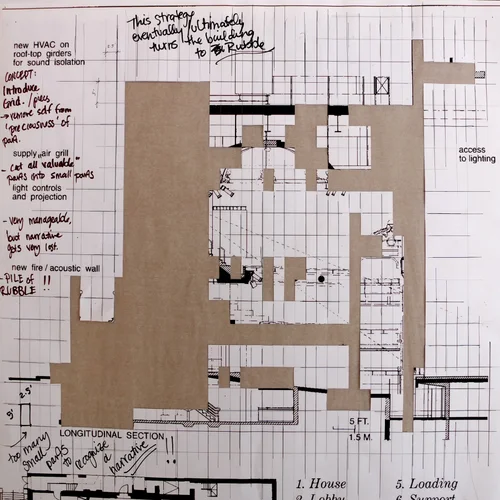 This strategy
eventually/ultimately
turns the building
to Rubble
new HVAC on
roof-top girders
for sound isolation
CONCEPT:
Introduce
Grid./pieces
→ remove self from
'preciousness' of
parts.
supply air grill
- cut all "valuable"
parts into small parts
light controls
and projection
- very manageable,
but narrative
gets very lost.
new fire / acoustic wall
- PILE OF !!
RUBBLE
access
to lighting
2.5'
9'
LONGITUDINAL SECTION
5 FT.
1.5 M.
too many
small parts to recognize a
narrative !!
1. House
2. Lobby
5. Loading
6. Support